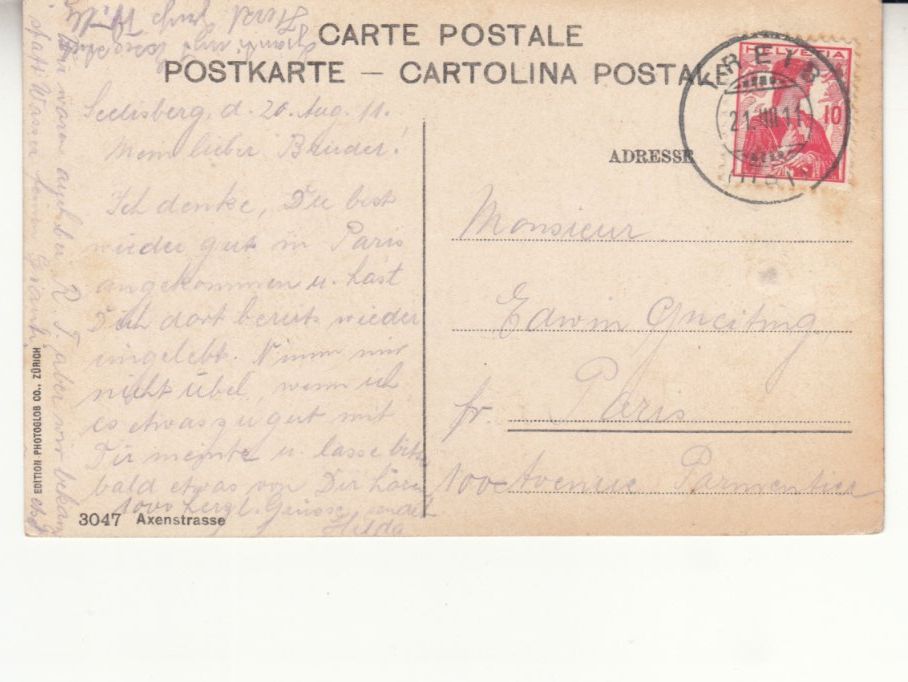 CARTE POSTALE
POSTKARTE — CARTOLINA POSTALE
HELVETIA
10
TREIB
21.VIII.11
ADRESSE
Seelisberg, d. 20. Aug. 11.
Mein lieber Bruder!
Ich denke, Du bist
wieder gut in Paris
angekommen u. hast
Dich dort bereits wieder
eingelebt. Nimm mir
nicht übel, wenn ich
es etwas zu gut mit
Dir meinte u. lasse bitte
bald etwas von Dir hören
1000 herzl. Grüsse sendet
Hilda
Monsieur
Edwin Gneiting
Paris
fr.
100 Avenue Parmentier
Wir waren auch bei R. T. aber wir bekamen
statt Wasser
EDITION PHOTOGLOB CO., ZÜRICH
3047 Axenstrasse